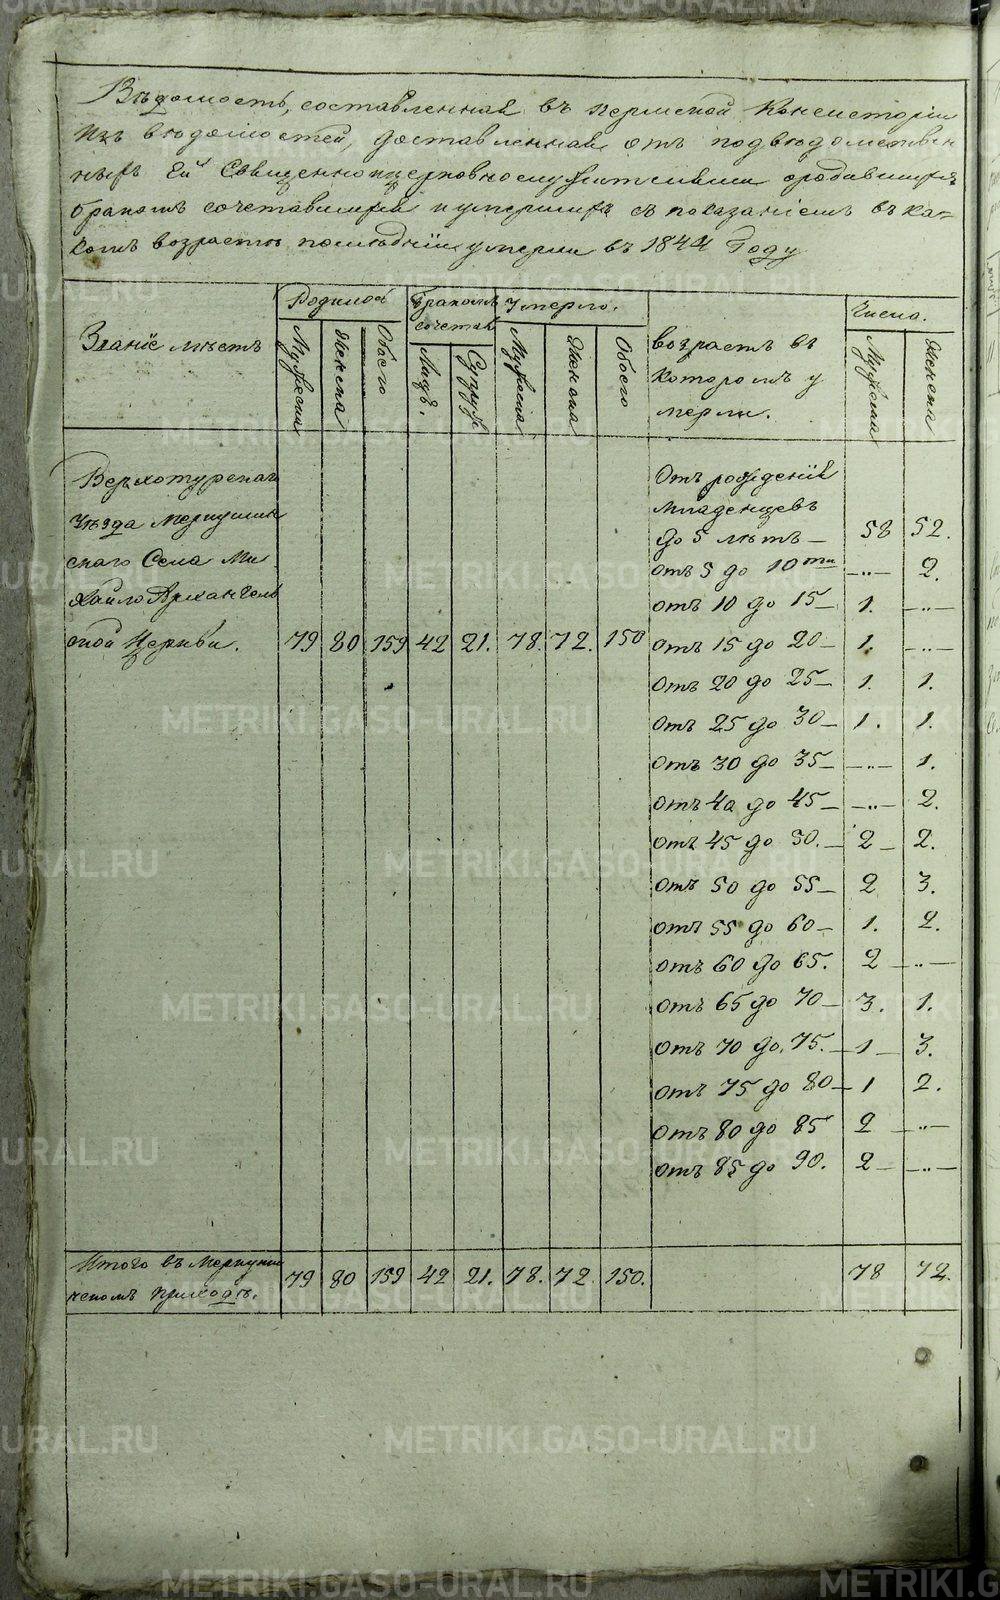 Вѣдомость, составленная въ Пермской Консисторіи
Изъ вѣдомостей, доставленная отъ подвѣдомствен
ныхъ Ей Священноцерковнослужителями о родившихся
бракомъ сочетавшихся и умершихъ съ показаніемъ въ ка-
комъ возрастѣ последніи умерли въ 1844 Году
Званіе мѣстъ
Родилось
Мужеска
Женска
Обоего
Бракомъ
сочетав
Лицъ.
Супруж
Умерло.
Мужеска
Женска
Обоего
возрастъ въ
которомъ у
мерли.
Числа.
Мужеска
Женска
Верхотурскаго
Уѣзда Меркушин
скаго Села Ми
хайло Архангель
ской Церкви. 79 80 159 42 21. 78. 72. 150
Отъ рожденія
младенцевъ
до 5 лѣтъ — 58 52.
отъ 5 до 10ти —„— 2.
отъ 10 до 15 — 1. —„—
отъ 15 до 20 — 1. —„—
отъ 20 до 25 — 1. 1.
отъ 25 до 30 — 1. 1.
отъ 30 до 35 — —„— 1.
отъ 40 до 45 — —„— 2.
отъ 45 до 50. — 2 — 2.
отъ 50 до 55 — 2 3.
отъ 55 до 60 — 1. 2.
отъ 60 до 65. 2 —„—
отъ 65 до 70 — 3. 1.
отъ 70 до 75. — 1 — 3.
отъ 75 до 80 — 1 2.
отъ 80 до 85 2 —„—
отъ 85 до 90. 2 — —„—
Итого въ Меркушин
скомъ приходѣ. 79 80 159 42 21. 78. 72. 150. 78 72.
METRIKI.GASO-URAL.RU